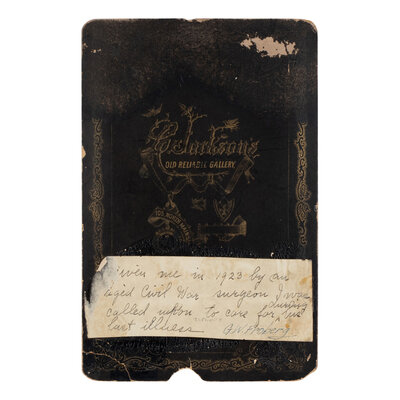 OLD RELIABLE GALLERY.
Given me in 1923 by an
aged Civil War surgeon I was
called upon to care for, during his
last illness